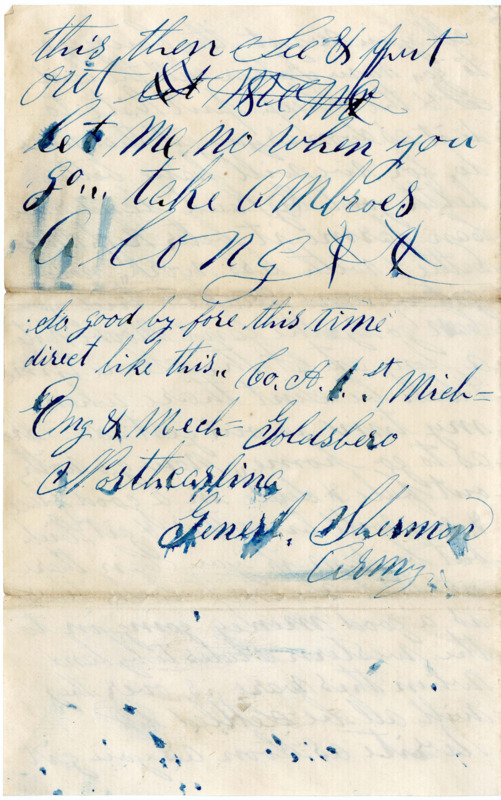 this then See & put
out
let me no when you
go... take Ambroes
Along
So good by fore this time
direct like this.. Co. A. 1st Mich=
Eng & Mech= Goldsbero
Northcarlina
Generl. Shermon
Army